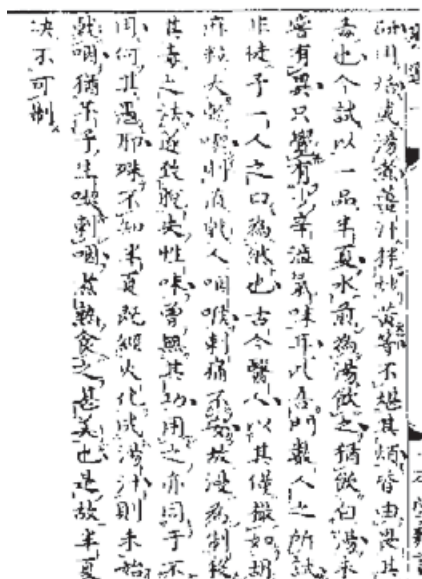 研用或湯煮薑汁拌炒黃等不堪其煩皆由畏其
毒也今試以一品半夏水煎為湯飲之猶飲白湯未
嘗有異只覺有少辛澁氣味耳此吾明數人之所試
非徒予一人之口為然也古今醫人以其僅撮如胡
麻粒大乾嚼則直戟人咽喉刺痛不安故漫為制殺
其毒之法遂致脫失性味曾無其功用之亦同于不
用何其愚耶殊不知半夏既經火化成湯汁則未始
戟咽猶芋子生嚼刺咽煮熟食之甚美也是故半夏
決不可制